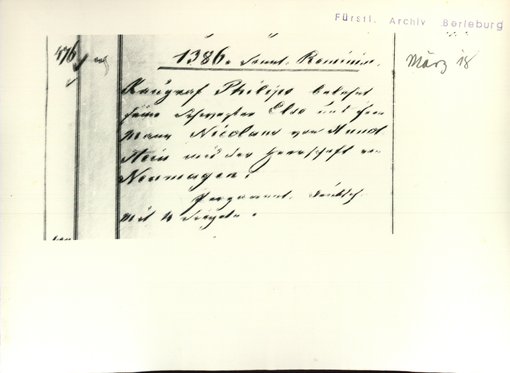 Fürstl. Archiv Berleburg
476
1386. Sanct. Reminis.
März 18
Raugraf Philips belehnt
seine Schwester Else und ihren
Mann Nicolaus von Hund
stein mit der Herrschaft von
Neumagen.
Pergament. Deutsch.
Mit 4 Siegeln.